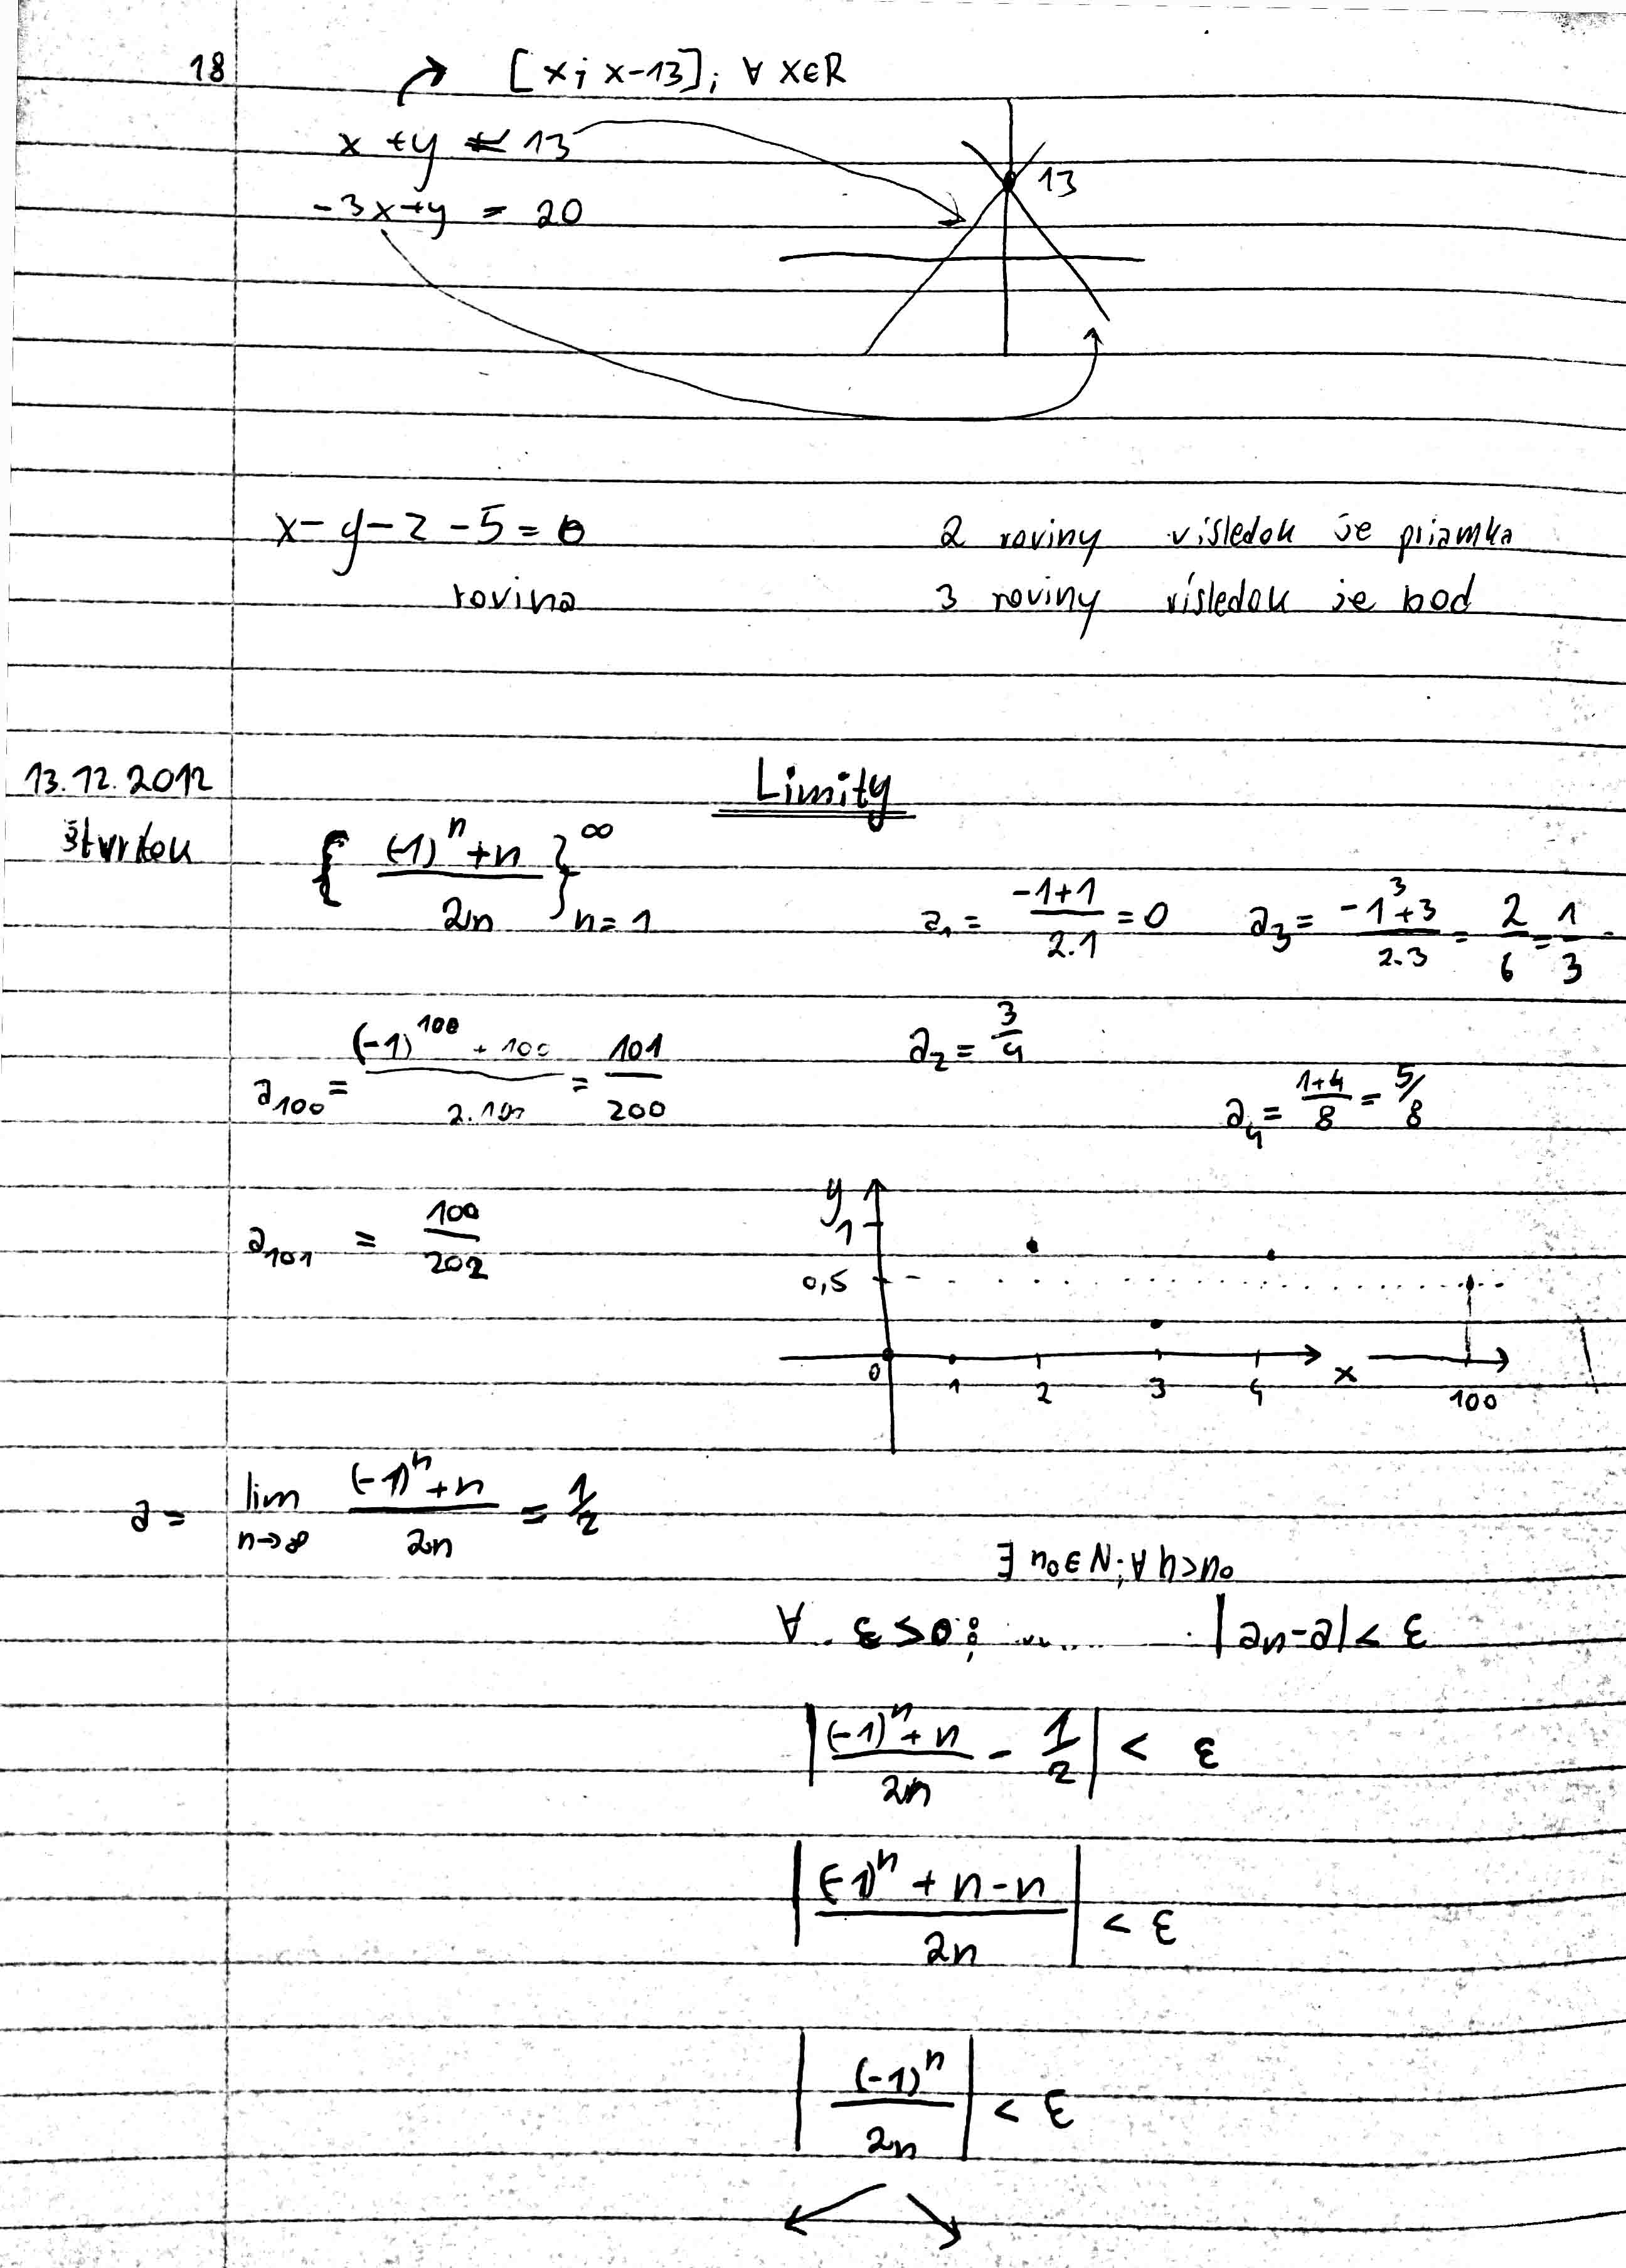 18 [x; x-13]; ∀ x∈R
x + y = 13
-3x+y = 20
13
x - y - z - 5 = 0 2 roviny visledok je priamka
rovina 3 roviny visledok je bod
13.12.2012 Limity
štvrtok { ((-1)^n + n)/(2n) }^∞_{n=1}
a_1 = (-1+1)/(2.1) = 0 a_3 = (-1^3+3)/(2.3) = 2/6 = 1/3
a_100 = ((-1)^100 + 100)/(2.100) = 101/200 a_2 = 3/4
a_4 = (1+4)/8 = 5/8
a_101 = 100/202
y
1
0,5
0 1 2 3 4 x 100
a = lim_{n→∞} ((-1)^n + n)/(2n) = 1/2
∃ n_0 ∈ N; ∀ n > n_0
∀ ε > 0; ........ |a_n - a| < ε
|((-1)^n + n)/(2n) - 1/2| < ε
|((-1)^n + n - n)/(2n)| < ε
|(-1)^n/(2n)| < ε